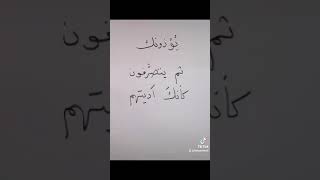 يُؤذونك
ثم يتصرَّفون
كأنكَ أذيتهم
TikTok